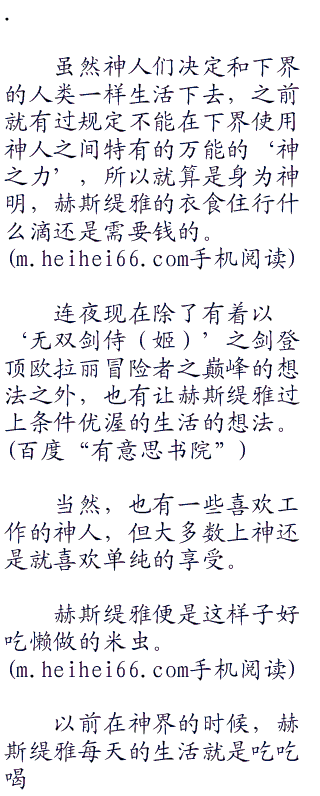 .
虽然神人们决定和下界
的人类一样生活下去，之前
就有过规定不能在下界使用
神人之间特有的万能的‘神
之力’，所以就算是身为神
明，赫斯缇雅的衣食住行什
么滴还是需要钱的。
(m.heihei66.com手机阅读)
连夜现在除了有着以
‘无双剑侍（姬）’之剑登
顶欧拉丽冒险者之巅峰的想
法之外，也有让赫斯缇雅过
上条件优渥的生活的想法。
(百度“有意思书院”)
当然，也有一些喜欢工
作的神人，但大多数上神还
是就喜欢单纯的享受。
赫斯缇雅便是这样子好
吃懒做的米虫。
(m.heihei66.com手机阅读)
以前在神界的时候，赫
斯缇雅每天的生活就是吃吃
喝